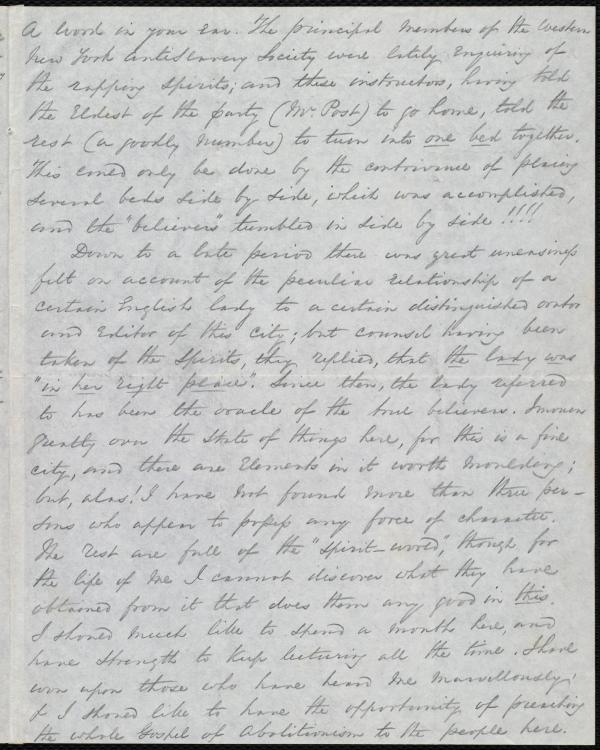 A word in your ear. The principal members of the Western
New York antislavery Society were lately enquiring of
the rapping spirits; and these instructors, having told
the Eldest of the party (Mr. Post) to go home, told the
rest (a goodly number) to turn into one bed together.
This could only be done by the contrivance of placing
several beds side by side, which was accomplished,
and the "believers" tumbled in side by side!!!!
Down to a late period there was great uneasiness
felt on account of the peculiar relationship of a
certain English lady to a certain distinguished orator
and Editor of this city; but counsel having been
taken of the Spirits, they replied, that the lady was
"in her right place". Since then, the lady referred
to has been the oracle of the true believers. I mourn
greatly over the state of things here, for this is a fine
city, and there are Elements in it worth moulding;
but, alas! I have not found more than three per-
sons who appear to possess any force of character.
The rest are full of the "spirit-world", though for
the life of me I cannot discover what they have
obtained from it that does them any good in this.
I should much like to spend a month here, and
have strength to keep lecturing all the time. I have
won upon those who have heard me marvellously;
& I should like to have the opportunity of preaching
the whole Gospel of Abolitionism to the people here.